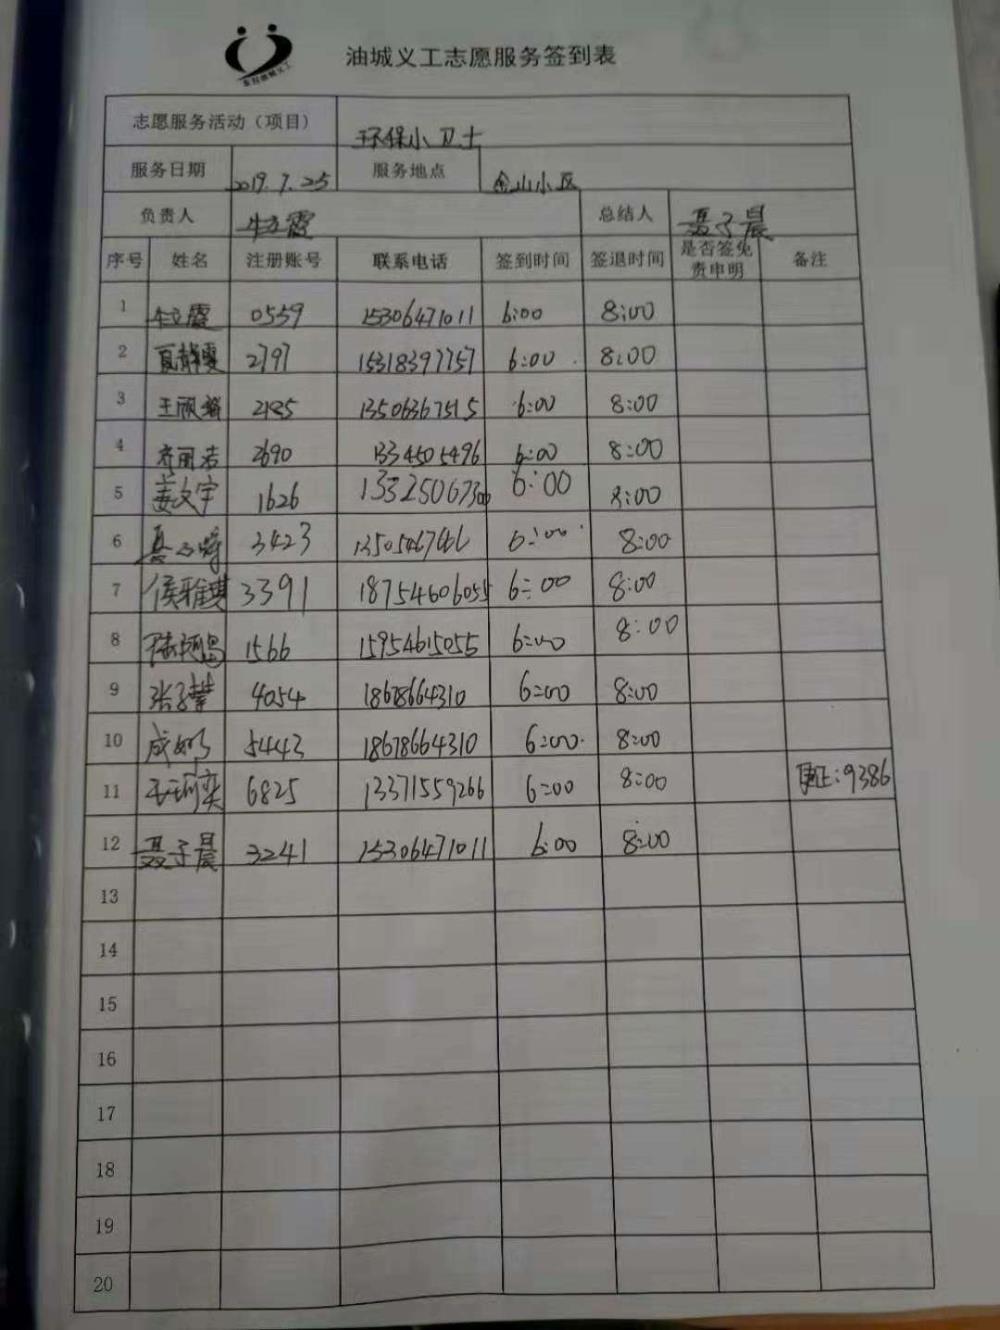 油城义工志愿服务签到表
志愿服务活动（项目） 环保小卫士
服务日期 2019.7.25 服务地点 金山小区
负责人 牛立霞 总结人 聂子晨
序号 姓名 注册账号 联系电话 签到时间 签退时间 是否签免责申明 备注
1 牛立霞 0559 15306471011 6:00 8:00
2 夏静雯 2797 15318397757 6:00 8:00
3 2185 13506367515 6:00 8:00
4 齐丽洁 2690 1334505496 6:00 8:00
5 姜文宇 1626 6:00 8:00
6 3423 6:00 8:00
7 侯雅琪 3391 18754606055 6:00 8:00
8 1566 15954615055 6:00 8:00
9 4054 18678664310 6:00 8:00
10 5443 18678664310 6:00 8:00
11 6825 13371559266 6:00 8:00 :9386
12 聂子晨 3241 15306471011 6:00 8:00
13
14
15
16
17
18
19
20